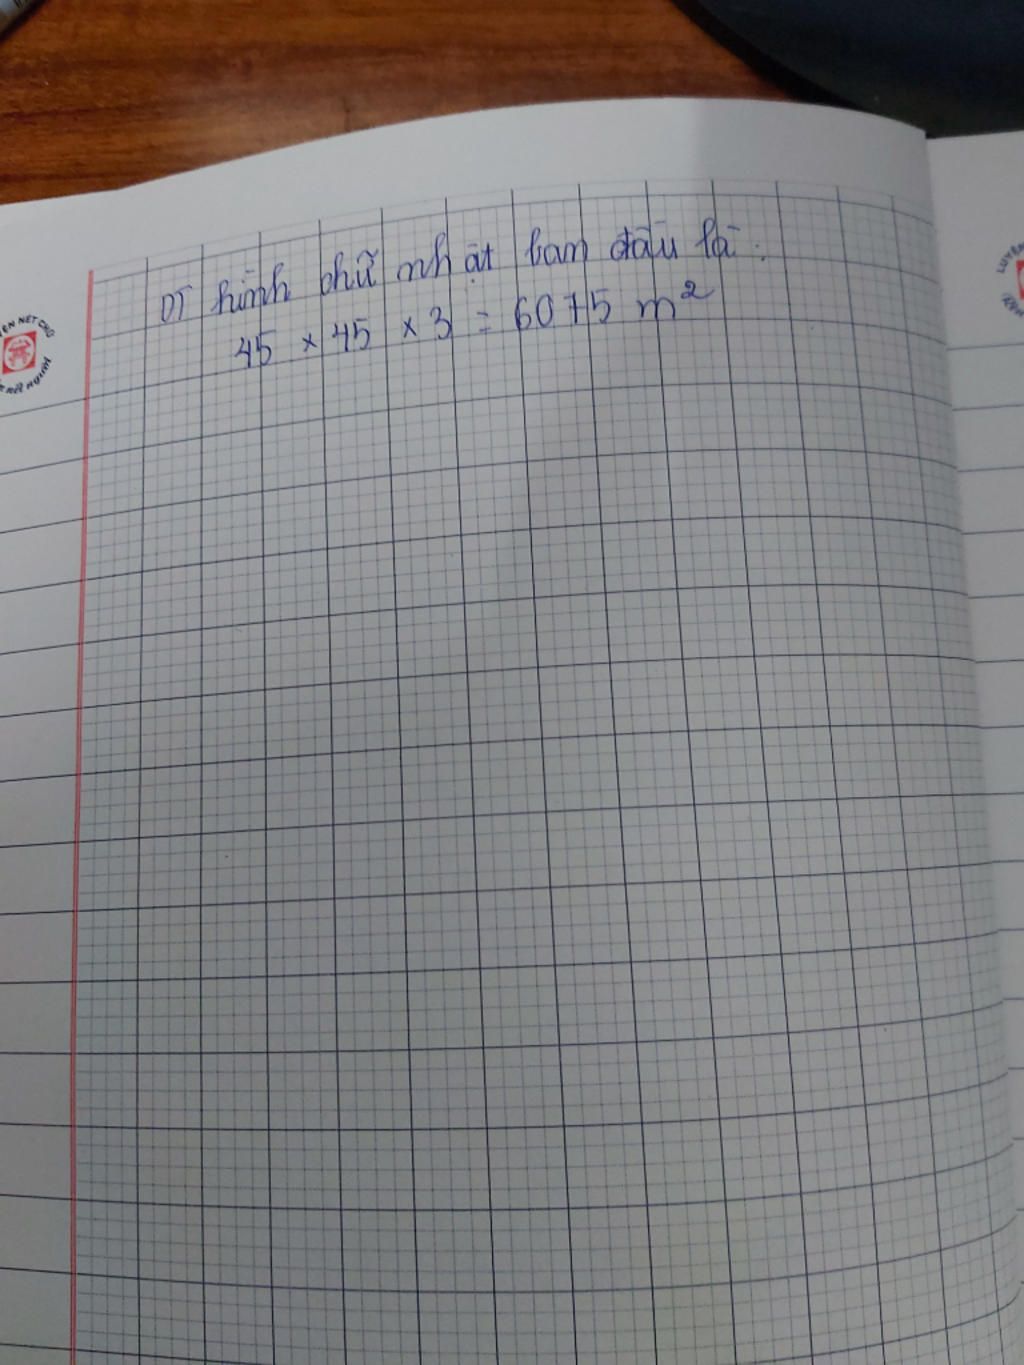 DT hình chữ nhật ban đầu là:
45 × 45 × 3 = 6075 m²
LUYỆN